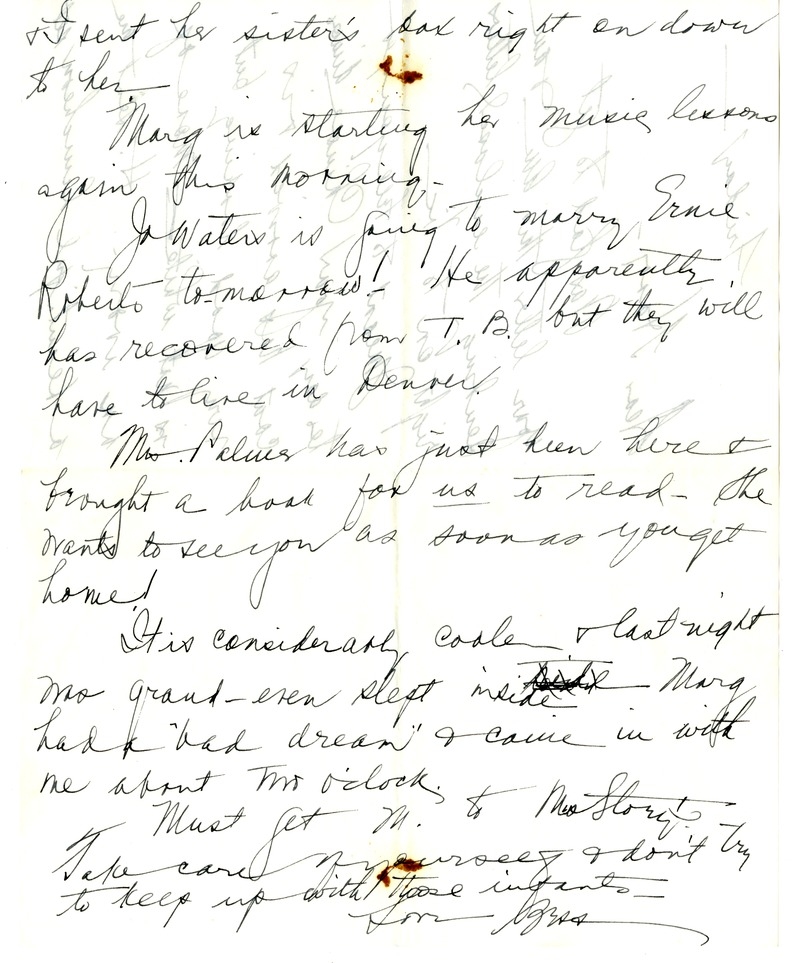 & I sent her sister's box right on down
to her.
Marg is starting her music lessons
again this morning.
Jo Waters is going to marry Ernie
Roberts to-morrow! He apparently
has recovered from T. B. but they will
have to live in Denver.
Mrs. Palmer has just been here &
brought a book for us to read - She
wants to see you as soon as you get
home!
It is considerably cooler & last night
was grand - even slept inside Marg
had a "bad dream" & came in with
me about two o'clock.
Must get M. to Mrs Story's.
Take care of yourself & don't try
to keep up with those infants -
Love Bess